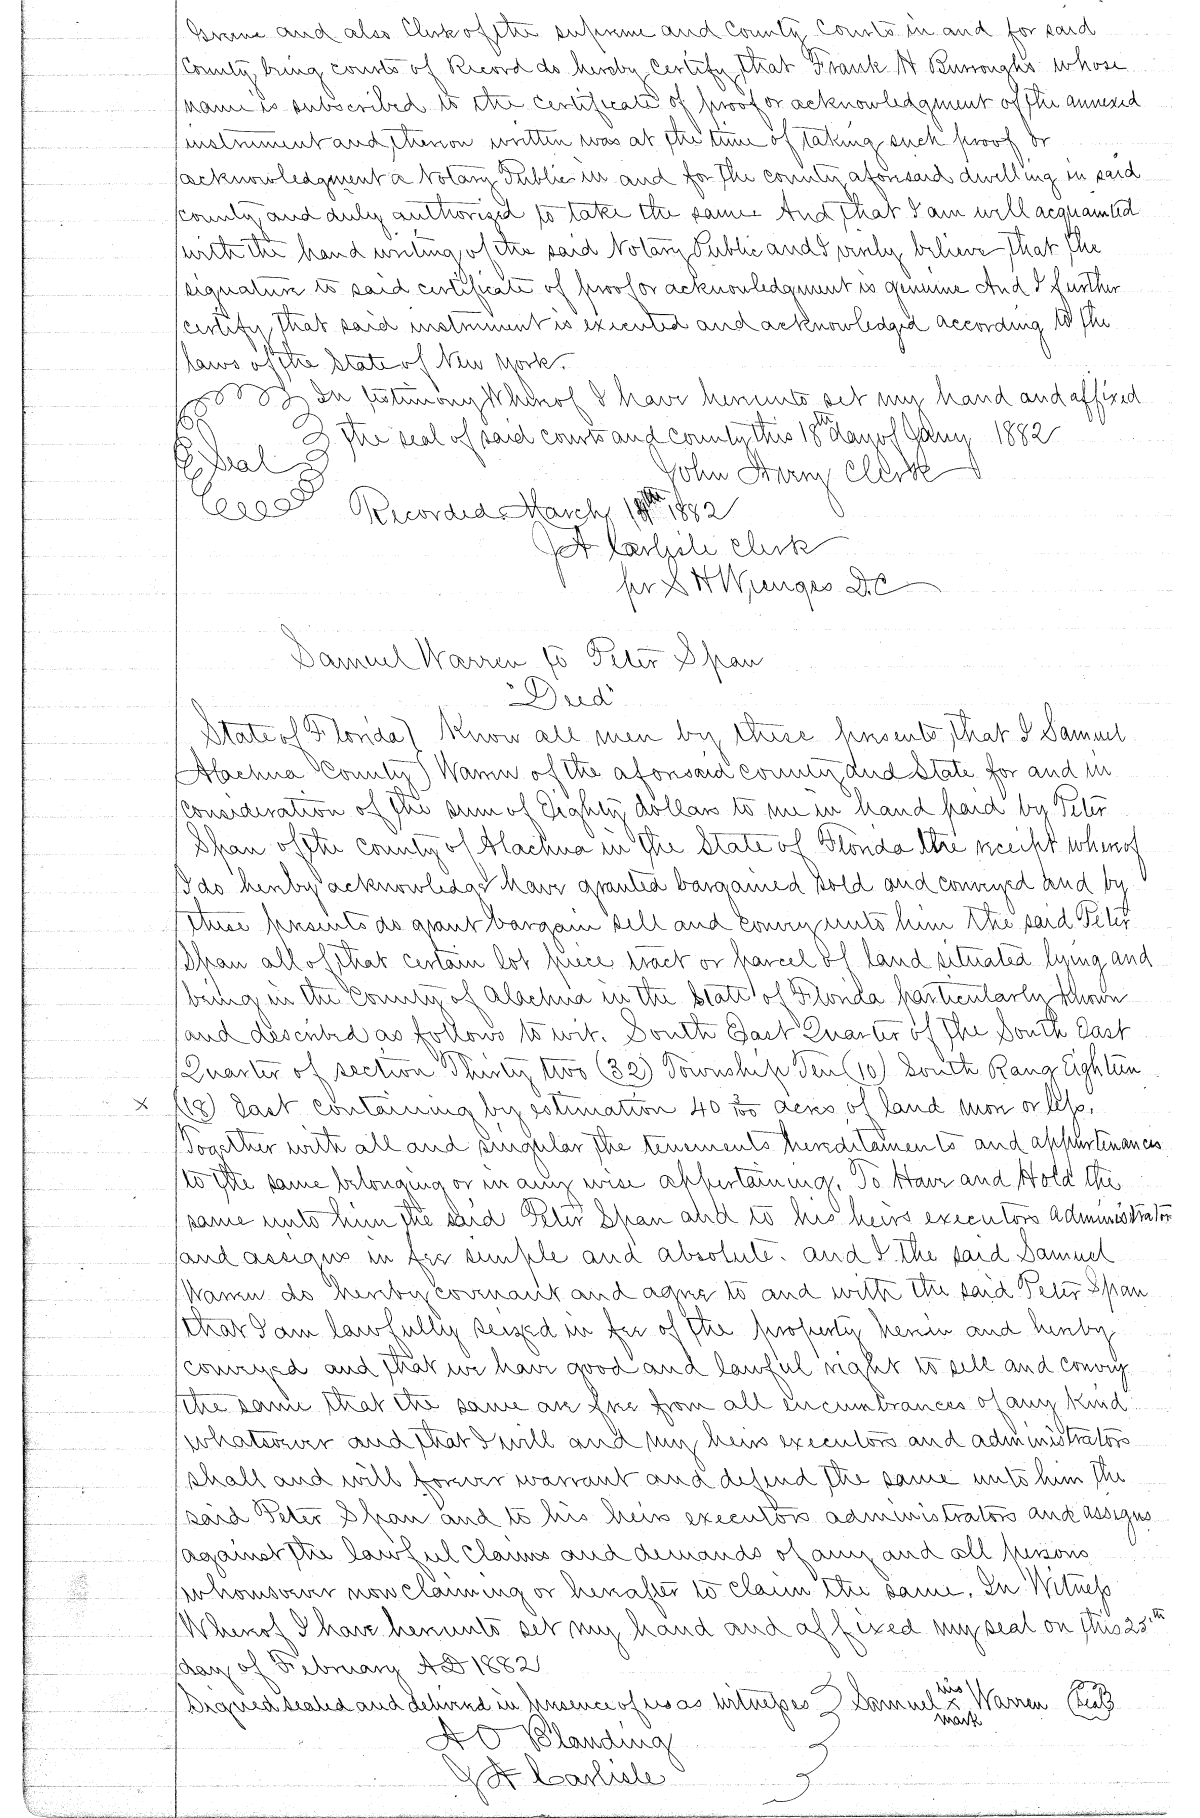 Greene and also Clerk of the supreme and County Courts in and for said
County, being courts of Record do hereby certify, that Frank H Burroughs whose
name is subscribed to the certificate of proof or acknowledgment of the annexed
instrument and thereon written was at the time of taking such proof or
acknowledgment a Notary Public in and for the county aforesaid dwelling in said
county, and duly authorized to take the same And that I am well acquainted
with the hand writing of the said Notary Public and I verily believe that the
signature to said certificate of proof or acknowledgment is genuine And I further
certify, that said instrument is executed and acknowledged according to the
laws of the State of New York.
In testimony Whereof I have hereunto set my hand and affixed
the seal of said courts and county this 18th day of Jany 1882
Seal
John Clerk
Recorded March 1882
J A Carlisle Clerk
per S H Wienges D.C
Samuel Warren to Peter Span
"Deed"
State of Florida } Know all men by these presents, that I Samuel
Alachua County } Warren of the aforesaid county and State for and in
consideration of the sum of Eighty dollars to me in hand paid by Peter
Span of the county of Alachua in the State of Florida the receipt whereof
I do hereby acknowledge have granted bargained sold and conveyed and by
these presents do grant bargain sell and convey unto him the said Peter
Span all of that certain lot piece tract or parcel of land situated lying and
being in the County of Alachua in the State of Florida particularly known
and described as follows to wit. South East Quarter of the South East
Quarter of section Thirty two (32) Township Ten (10) South Rang Eighteen
x (18) East containing by estimation 40 acres of land more or less.
Together with all and singular the tenements hereditaments and appurtenances
to the same belonging or in any wise appertaining. To Have and Hold the
same unto him the said Peter Span and to his heirs executors administrator
and assigns in fee simple and absolute. and I the said Samuel
Warren do hereby covenant and agree to and with the said Peter Span
that I am lawfully seized in fee of the property herein and hereby
conveyed and that we have good and lawful right to sell and convey
the same that the same are free from all encumbrances of any kind
whatsoever and that I will and my heirs executors and administrators
shall and will forever warrant and defend the same unto him the
said Peter Span and to his heirs executors administrators and assigns
against the lawful claims and demands of any and all persons
whomsoever now claiming or hereafter to claim the same. In Witness
Whereof I have hereunto set my hand and affixed my seal on this 25th
day of February AD 1882
Signed sealed and delivered in presence of us as witnesses } Samuel his x mark Warren (Seal)
A O Blanding
J A Carlisle